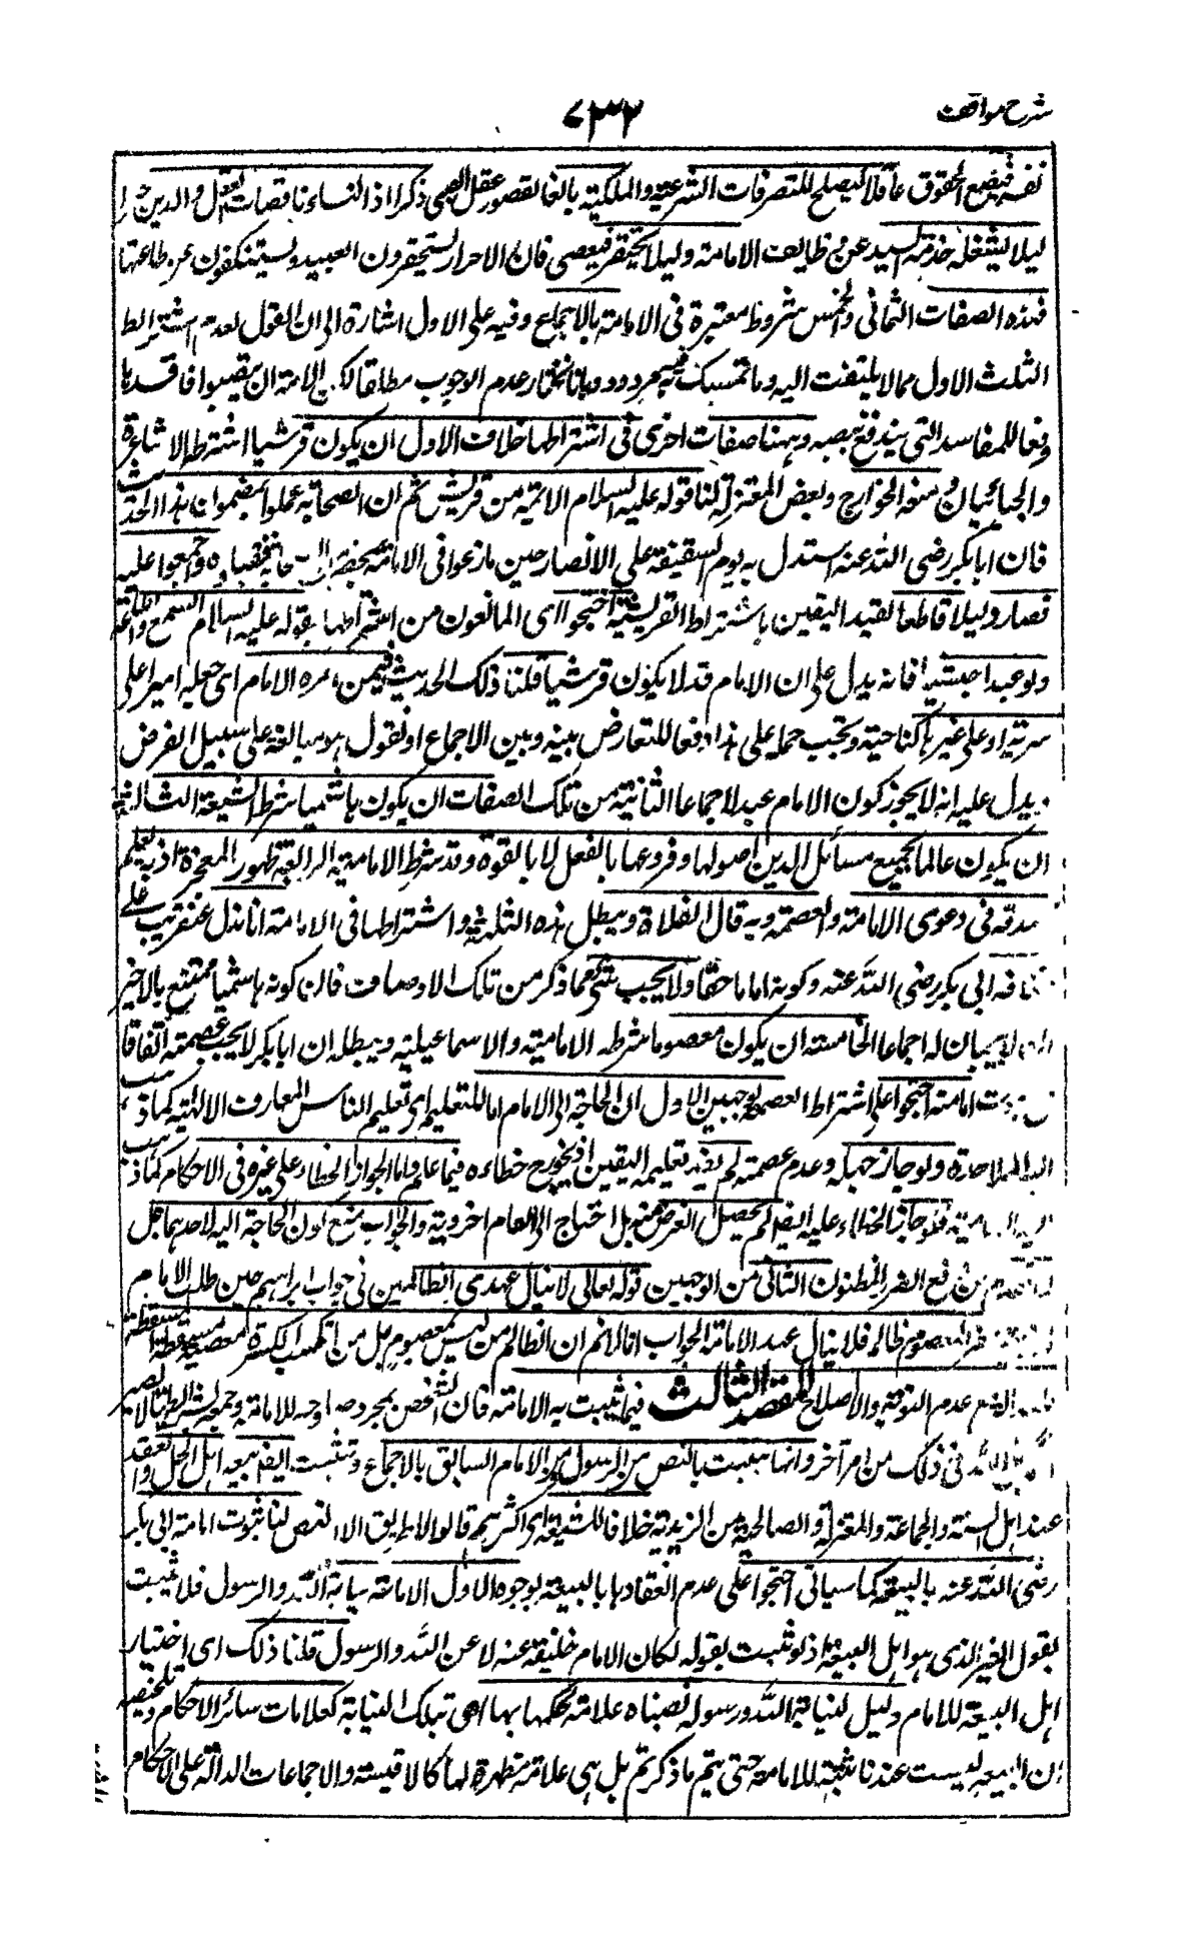 شرح مواقف
٧٣٢
نفسه فيضيع الحقوق عاقلا ليصلح للتصرفات الشرعية والملكية بالغا لقصور عقل الصبي ذكرا اذ النساء ناقصات العقل والدين حرا
ليلا يشغله خدمة السيد عن وظايف الامامة وليلا يحتقر فيعصى فان الاحرار يستحقرون العبيد ويستنكفون عن طاعتها
فهذه الصفات الثماني والخمس شروط معتبرة فى الامامة بالاجماع وفيه على الاول اشارة الى ان القول بعدم اشتراط
الثلث الاول مما لا يلتفت اليه وما تمسك به مردود وبانا نختار عدم الوجوب مطلقا لكن للامة ان ينصبوا فاقدها
دفعا للمفاسد التى يندفع بنصبه وههنا صفات اخرى فى اشتراطها خلاف الاول ان يكون قرشيا اشترطه الاشاعرة
والجبائيان ومنعه الخوارج وبعض المعتزلة لنا قوله عليه السلام الائمة من قريش ثم ان الصحابة عملوا بمضمون هذا الحديث
فان ابا بكر رضى الله عنه استدل به يوم السقيفة على الانصار حين نازعوا فى الامامة بمحضر الصحابة فقبلوه واجمعوا عليه
فصار دليلا قاطعا يفيد اليقين باشتراط القرشية احتجوا اى المانعون من اشتراطها بقوله عليه السلام السمع والطاعة
ولو عبدا حبشيا فانه يدل على ان الامام قد لا يكون قرشيا قلنا ذلك الحديث فيمن امره الامام اى جعله اميرا على
سرية او على غيرها كناحية ويجب حمله على هذا دفعا للتعارض بينه وبين الاجماع او نقول هو مبالغة على سبيل الفرض
ويدل عليه انه لا يجوز كون الامام عبدا اجماعا الثانية من تلك الصفات ان يكون هاشميا شرطه الشيعة الثالثة
ان يكون عالما بجميع مسائل الدين اصولها وفروعها بالفعل لا بالقوة وقد شرطه الامامية الرابعة ظهور المعجزة اذ به يعلم
صدقه فى دعوى الامامة والعصمة وبه قال الغلاة ويبطل هذه الثلثة واشتراطها فى الامامة انا ندل عنقريب على
خلافة ابى بكر رضى الله عنه وكونه اماما حقا ولا يجب شئ مما ذكر من تلك الاوصاف فان كونه هاشميا ممتنع بالاخير
ان لا يجبان له اجماعا الخامسة ان يكون معصوما شرطه الامامية والاسماعيلية ويبطله ان ابا بكر لا يجب عصمته اتفاقا
مع ثبوت امامته احتجوا على اشتراط العصمة بوجهين الاول ان الحاجة الى الامام اما للتعليم اى تعليم الناس المعارف الالهية كما ذهب
اليه الملاحدة ولو جاز جهله وعدم عصمته لم يفد تعليمه اليقين اذ يجوز ح خطاءه فيما علم واما لجواز الخطاء على غيره فى الاحكام كما ذهب
اليه الامامية فلو جاز الخطاء عليه ايضا لم يحصل الغرض منه بل احتاج الى امام اخر وبه والجواب منع كون الحاجة اليه لاحدهما بل
لما تقدم من دفع الضرر المظنون الثانى من الوجهين قوله تعالى لا ينال عهدى الظالمين فى جواب ابراهيم حين طلب الامام
لذريته وغير المعصوم ظالم فلا ينال عهد الامامة الجواب انا لا نم ان الظالم من ليس بمعصوم بل من ارتكب الكبيرة معصية مسقطة
للعدالة مع عدم التوبة والاصلاح المقصد الثالث فيما يثبت به الامامة فان الشخص بمجرد صلوحه للامامة وجمعه لشرائطها لا يصير
اماما بل لا بد فى ذلك من امر آخر وانها تثبت بالنص من الرسول ومن الامام السابق بالاجماع وتثبت ايضا ببيعة اهل الحل والعقد
عند اهل السنة والجماعة والمعتزلة والصالحية من الزيدية خلافا للشيعة اى اكثرهم قالوا لا طريق الا النص لنا ثبوت امامة ابى بكر
رضى الله عنه بالبيعة كما سياتى احتجوا على عدم انعقادها بالبيعة بوجوه الاول الامامة نيابة الله والرسول فلا تثبت
بقول الغير الذى هو اهل البيعة اذ لو ثبت بقوله لكان الامام خليفة عنه لا عن الله والرسول قلنا ذلك اى اختيار
اهل البيعة للامام دليل لنيابة الله ورسوله نصباه علامة لحكمها بها اى بتلك النيابة كعلامات سائر الاحكام وتلخيصه
ان البيعة ليست عندنا مثبتة للامامة حتى يتم ما ذكرتم بل هى علامة مظهرة لها كالاقيسة والاجماعات الدالة على الاحكام